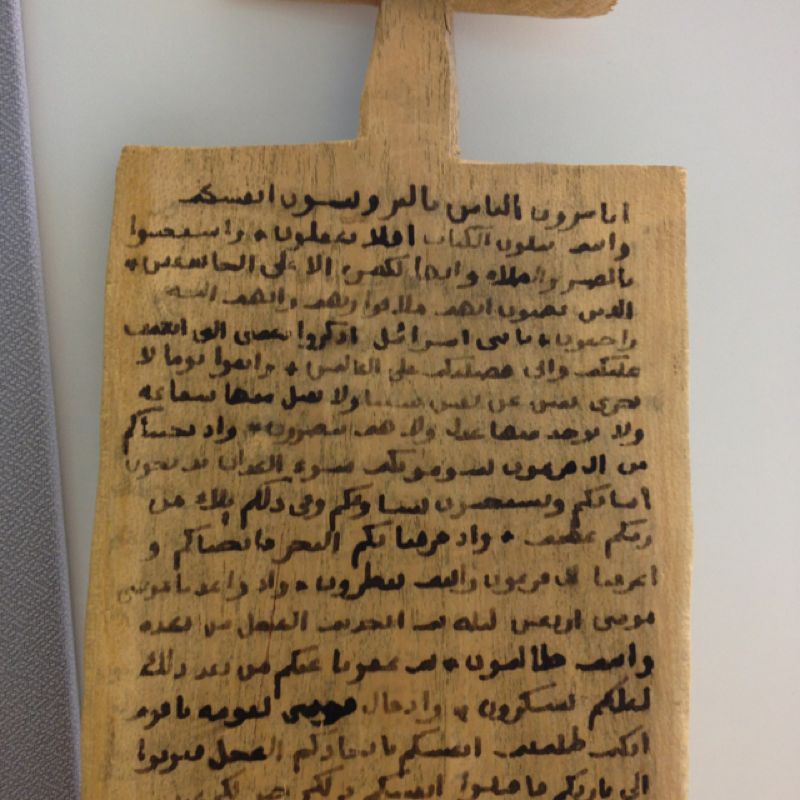 اتامرون الناس بالبر وتنسون انفسكم
وانتم تتلون الكتاب افلا تعقلون * واستعينوا
بالصبر والصلاة وانها لكبيرة الا على الخاشعين *
الذين يظنون انهم ملاقوا ربهم وانهم اليه
راجعون * يا بني اسرائيل اذكروا نعمتي التي انعمت
عليكم واني فضلتكم على العالمين * واتقوا يوما لا
تجزي نفس عن نفس شيئا ولا يقبل منها شفاعة
ولا يوخذ منها عدل ولا هم ينصرون * واذ نجيناكم
من ال فرعون يسومونكم سوء العذاب يذبحون
ابناكم ويستحيون نساوكم وفي ذلكم بلاء من
ربكم عظيم * واذ فرقنا بكم البحر فانجيناكم و
اغرقنا ال فرعون وانتم تنظرون * واذ واعدنا موسى
موسى اربعين ليلة ثم اتخذتم العجل من بعده
وانتم ظالمون * ثم عفونا عنكم من بعد ذلك
لعلكم تشكرون * واذ قال موسى لقومه يا قوم
انكم ظلمتم انفسكم باتخاذكم العجل فتوبوا
الى باريكم فاقتلوا انفسكم ذلكم خير لكم